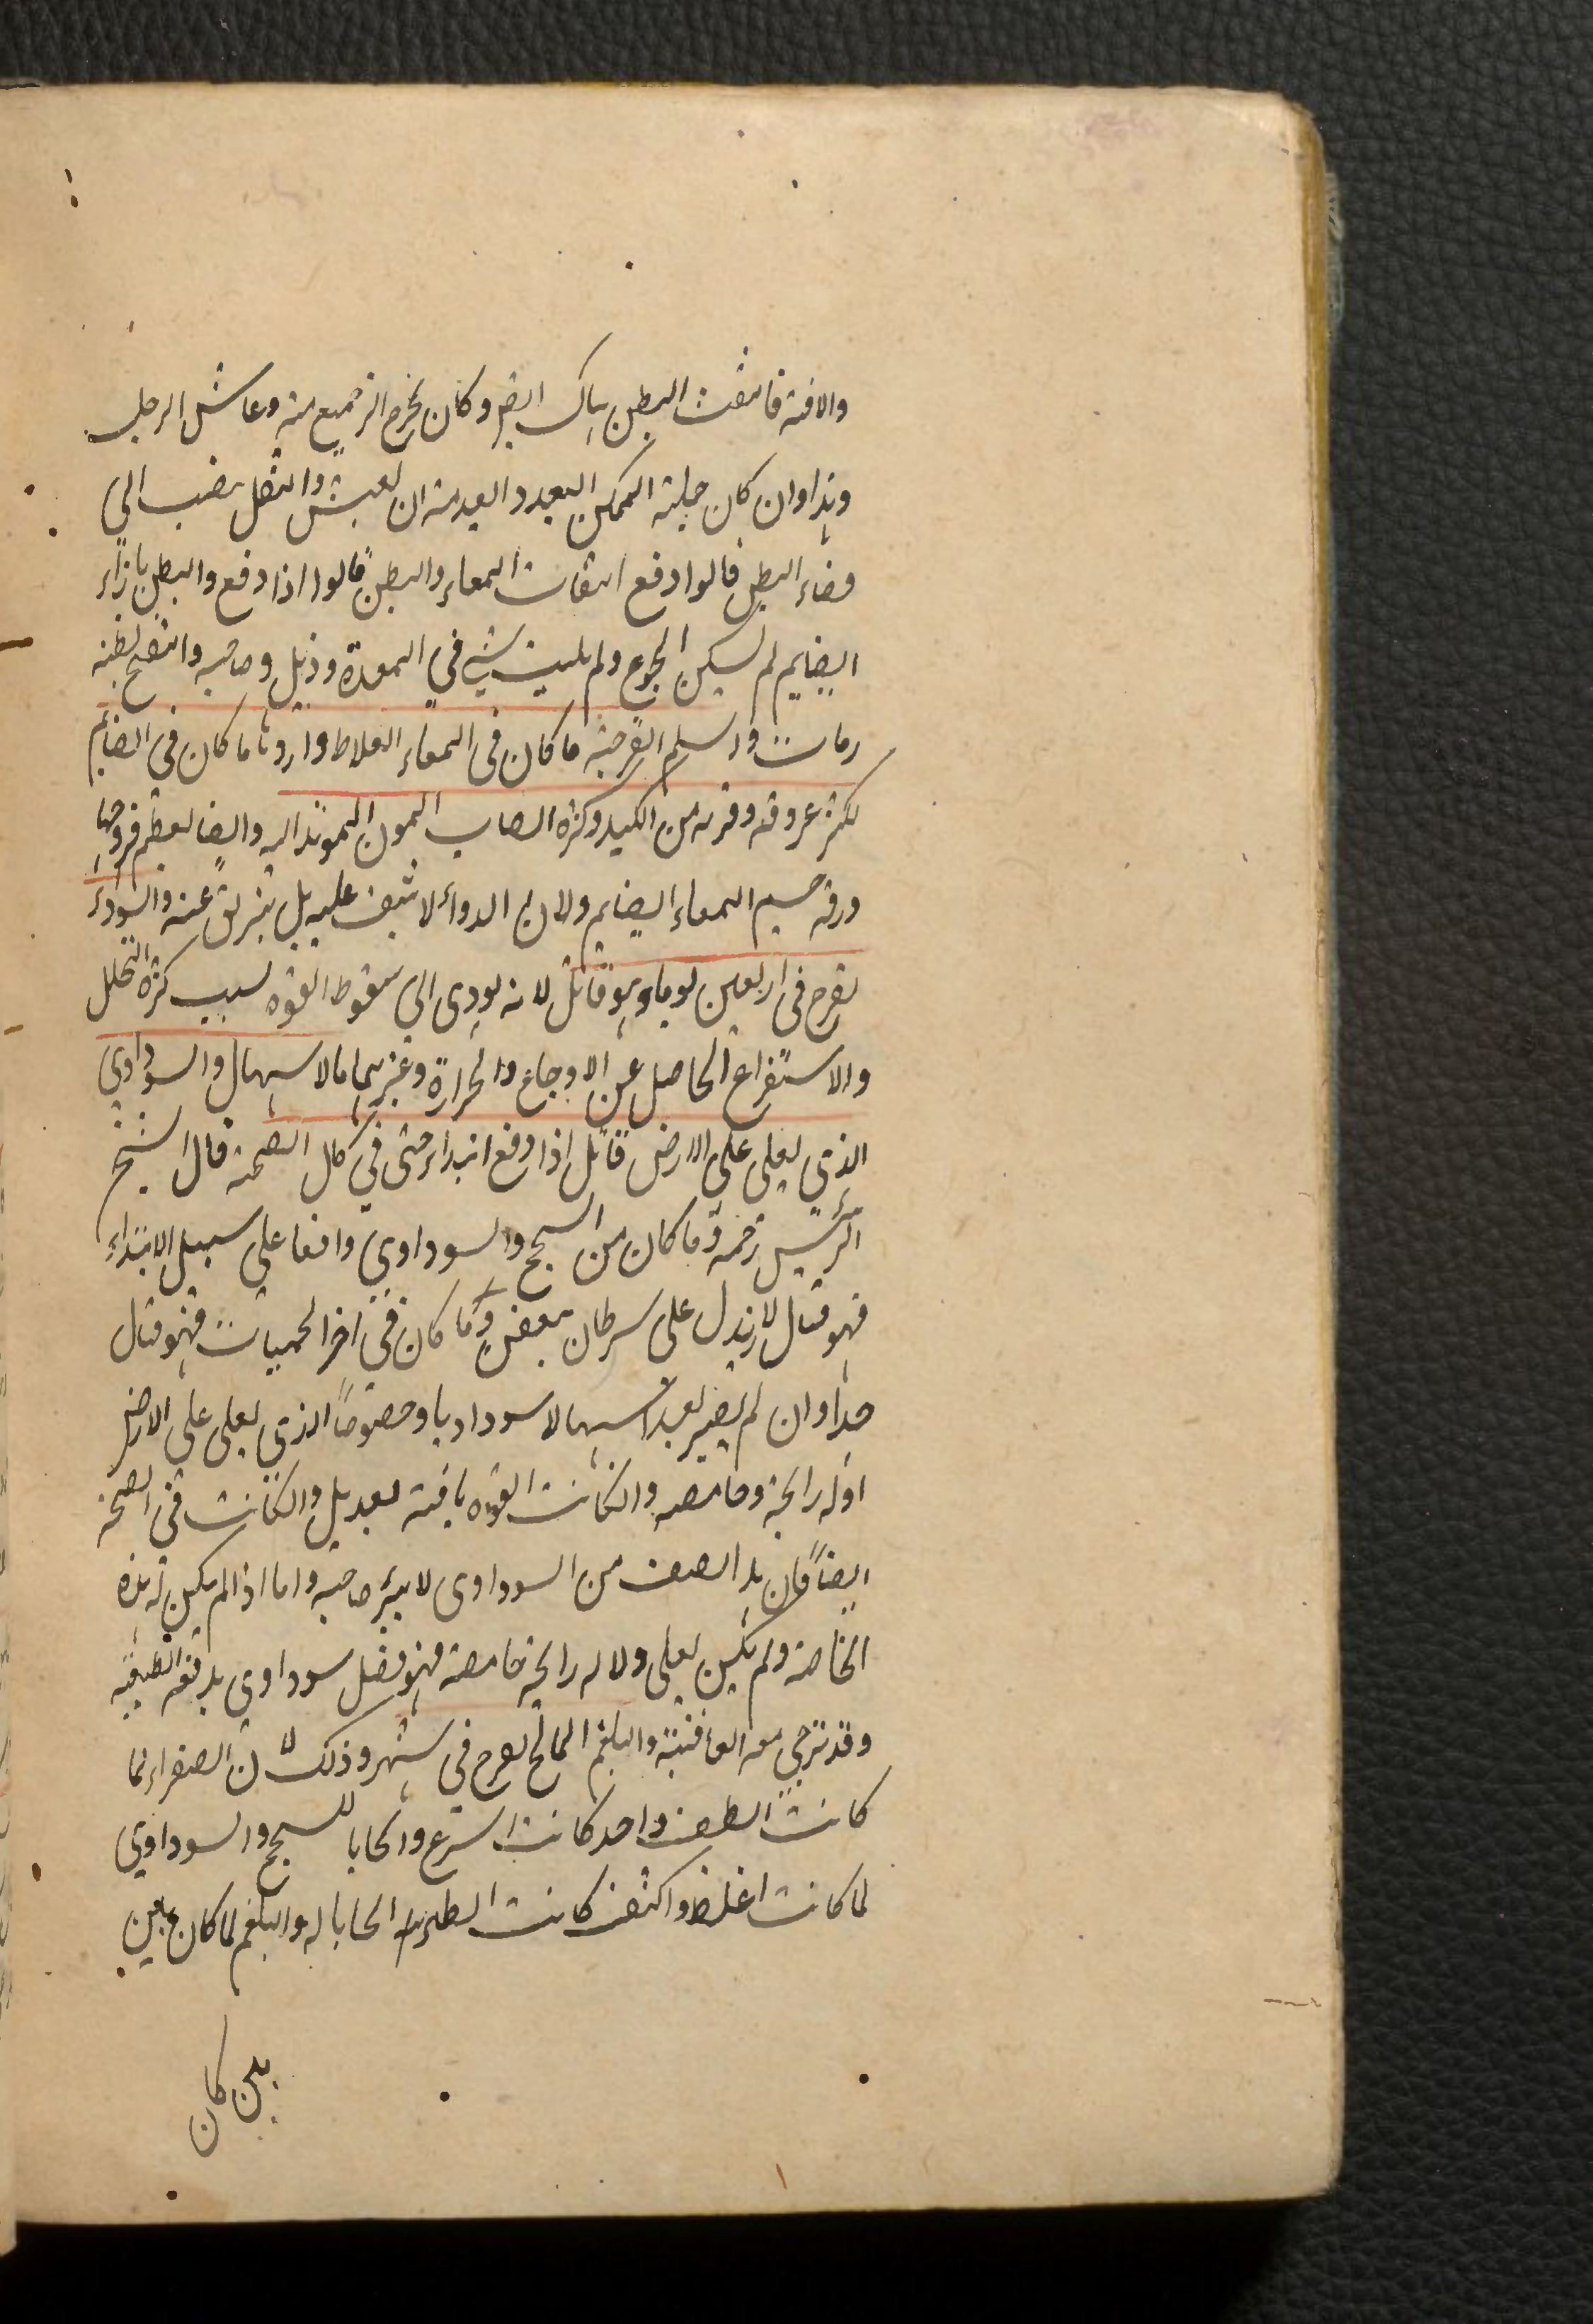 والافة فانثقب البطن هناك ايضا وكان يخرج الرجيع منه وعاش الرجل
وهذا وان كان حيلته الممكن البعيد والبعيد منه ان يعيش والثقل ينصب الى
فضاء البطن قالوا وقع انثقاب المعاء والبطن قالوا اذا وقع والبطن بازاء
الصايم لم يسكن الجوع ولم يلبث شي في المعدة وذبل وصاحبه وانتفخ بطنه
ومات واسلم القرحة ما كان فى المعاء الغلاظ واردؤها ما كان فى الصايم
لكثرة عروقه وقربه من الكبد وكثرة انصباب المرة اليه وايضا لعظم قروحها
ورقة جسم المعاء الصايم ولان الدواء لا يقف عليه بل ينزلق عنه والسوداء
يقرح فى اربعين يوما وهو قاتل لانه يودى الى سقوط القوة بسبب كثرة التحلل
والاستفراغ الحاصل عن الاوجاع والحرارة وغيرهما مالاسهال والسوداوي
الذي يغلى على الارض قاتل اذا وقع ابتداء حتى في كمال الصحة قال الشيخ
الرئيس رحمه وما كان من السحج والسوداوي واقعا على سبيل الابتداء
فهو قتال لانه يدل على سرطان يعفن وما كان في آخر الحميات فهو قتال
جدا وان لم يصير بعد اسهالا سوداويا وخصوصا الذي يغلى على الارض
او له رايحة وحامضه وان كانت القوة باقية بعد بل وان كانت في الصحة
ايضا فان هذا الصنف من السوداوى لا يبرء صاحبه واما اذا لم يكن له هذه
الخاصة ولم يكن يغلى ولا له رايحة حامضة فهو فضل سوداوي يدفعه الطبيعة
وقد ترجى معه العافية والبلغم المالح يقرح في شهر وذلك لان الصفراء لما
كانت الطف واحد كانت اسرع وايجابا للسحج والسوداوي
لما كانت اغلظ واكثف كانت ابطأ ايجابا له والبلغم لما كان بين
بين كان